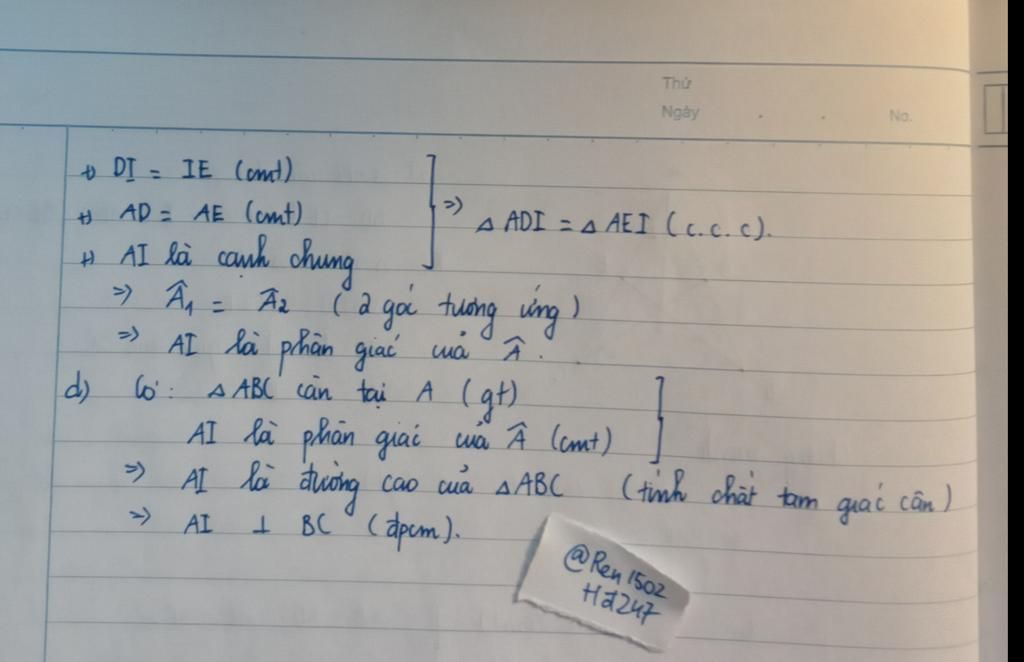 Thứ
Ngày . . No.
+) DI = IE (cmt)
+) AD = AE (cmt)
=> △ ADI = △ AEI (c.c.c).
+) AI là cạnh chung
=> Â₁ = Â₂ (2 góc tương ứng)
=> AI là phân giác của Â.
d) Có: △ ABC cân tại A (gt)
AI là phân giác của Â (cmt)
=> AI là đường cao của △ABC (tính chất tam giác cân)
=> AI ⊥ BC (đpcm).
@Ren1502
Hđ247